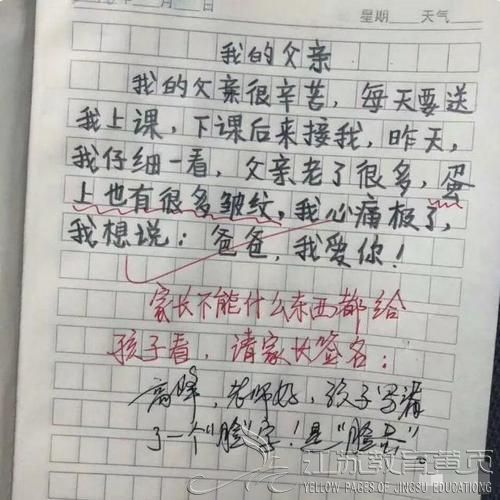 月 日 星期 天气
我的父亲
我的父亲很辛苦，每天要送
我上课，下课后来接我，昨天，
我仔细一看，父亲老了很多，蛋
上也有很多皱纹，我心痛极了，
我想说：爸爸，我爱你！
家长不能什么东西都给
孩子看，请家长签名：
高峰，老师好，孩子写漏
了一个“脸”字！是“脸蛋”。
江苏教育黄页
YELLOW PAGES OF JINGSU EDUCATIONG